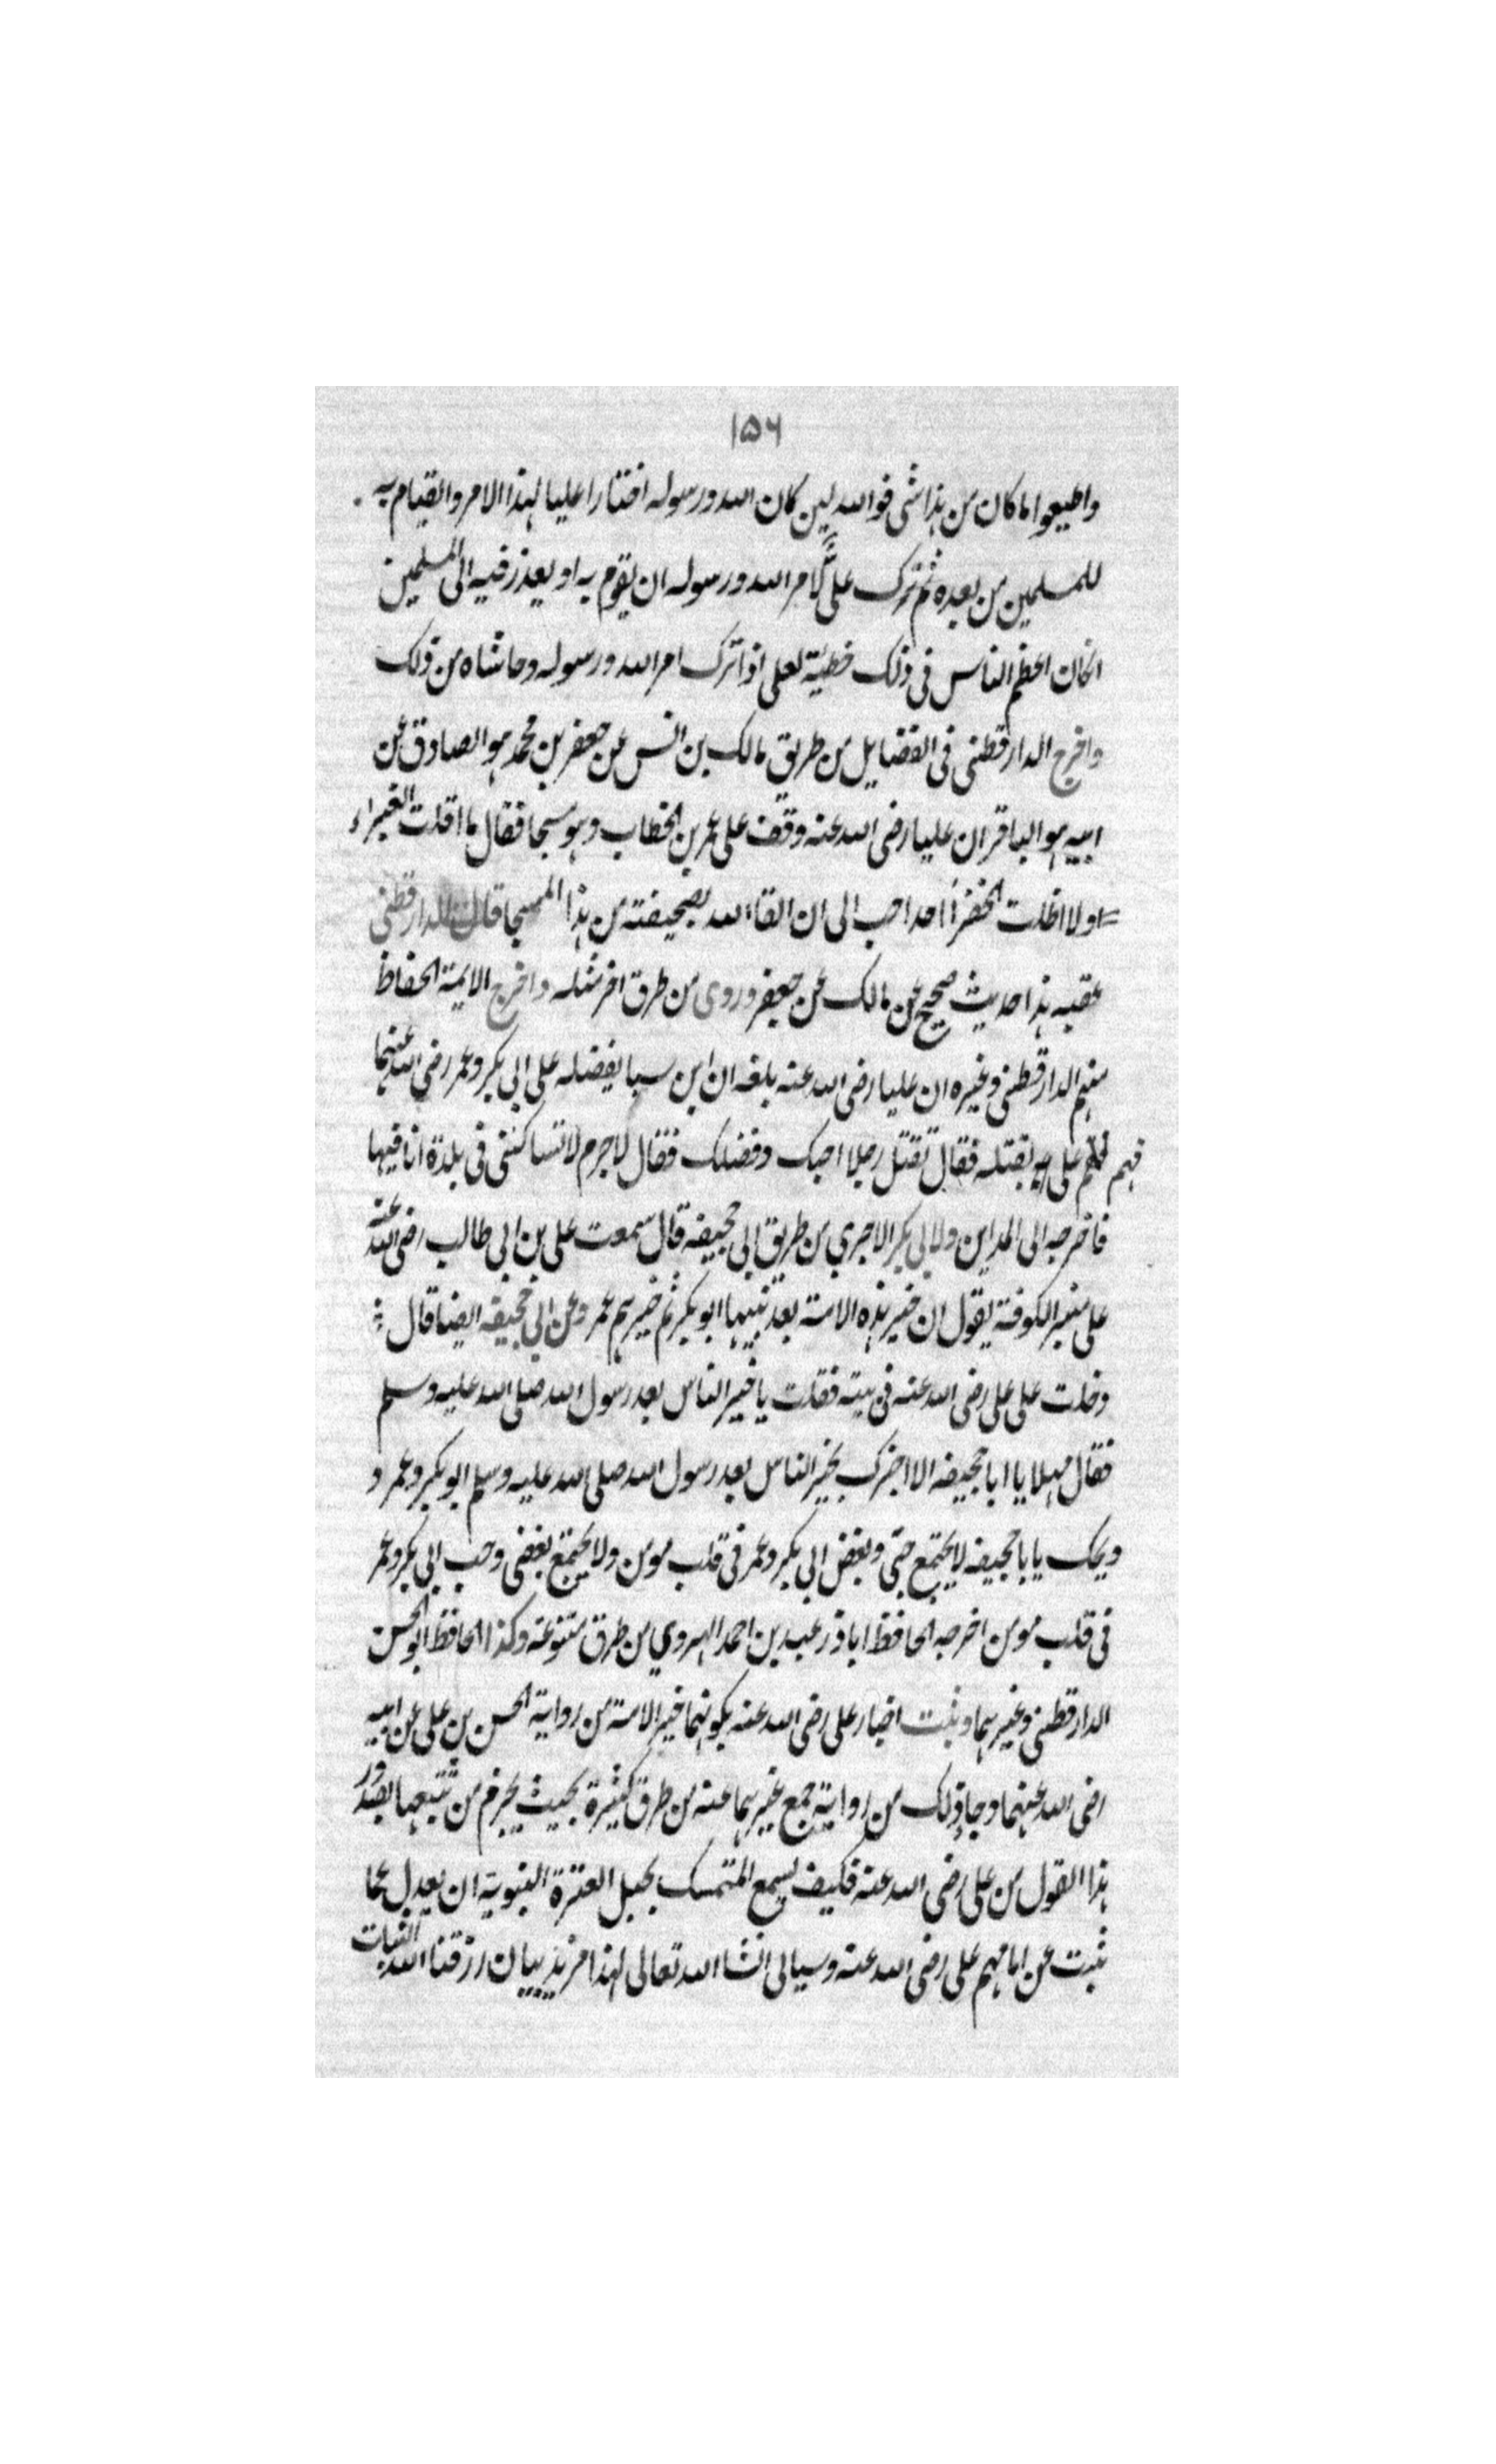 ۱۵۶
واطيعوا ما كان من هذا شى فوالله لين كان الله ورسوله اختارا عليا لهذا الامر والقيام به
للمسلمين من بعده ثم ترك على لامر الله ورسوله ان يقوم به او يعذر فيه الى المسلمين
لكان اعظم الناس فى ذلك خطيئة لعلى اذا ترك امر الله ورسوله وحاشاه من ذلك
واخرج الدارقطنى فى الفضايل من طريق مالك بن انس عن جعفر بن محمد هو الصادق عن
ابيه هو الباقر ان عليا رضى الله عنه وقف على عمر بن الخطاب وهو مسجا فقال ما اقلت الغبراء
ولا اظلت الخضرا احدا احب الى ان القا الله بصحيفته من هذا المسجا قال الدارقطنى
عقبه هذا حديث صحيح عن مالك عن جعفر وروى من طرق اخر مثله واخرج الايمة الحفاظ
منهم الدارقطنى وغيره ان عليا رضى الله عنه بلغه ان ابن سبا يفضله على ابى بكر وعمر رضى الله عنهما
فهم على بقتله فقال تقتل رجلا احبك وفضلك فقال لاجرم لا تساكننى فى بلدة انا فيها
فاخرجه الى المداين ولابى بكر الاجرى من طريق ابى جحيفه قال سمعت على بن ابى طالب رضى الله عنه
على منبر الكوفة يقول ان خير هذه الامة بعد نبيها ابو بكر ثم خيرهم عمر وعن ابى جحيفه ايضا قال
دخلت على على رضى الله عنه فى بيته فقلت يا خير الناس بعد رسول الله صلى الله عليه وسلم
فقال مهلا يا ابا جحيفه الا اخبرك بخير الناس بعد رسول الله صلى الله عليه وسلم ابو بكر وعمر و
ويحك يابا جحيفه لا يجتمع حبى وبغض ابى بكر وعمر فى قلب مومن ولا يجتمع بغضى وحب ابى بكر وعمر
فى قلب مومن اخرجه الحافظ اباذر عبد بن احمد الهروي من طرق متنوعة وكذا الحافظ ابو الحسن
الدارقطنى وغيرهما وثبت اخبار على رضى الله عنه بكونهما خير الامة من رواية الحسن بن على عن ابيه
رضى الله عنهما وجا ذلك من رواية جمع غيرهما عنه من طرق كثيرة بحيث يجزم من تتبعها بصدور
هذا القول من على رضى الله عنه فكيف يسع المتمسك بحبل العترة النبوية ان يعدل عما
ثبت عن امامهم على رضى الله عنه وسياتى انشا الله تعالى لهذا مزيد بيان رزقنا الله الثبات